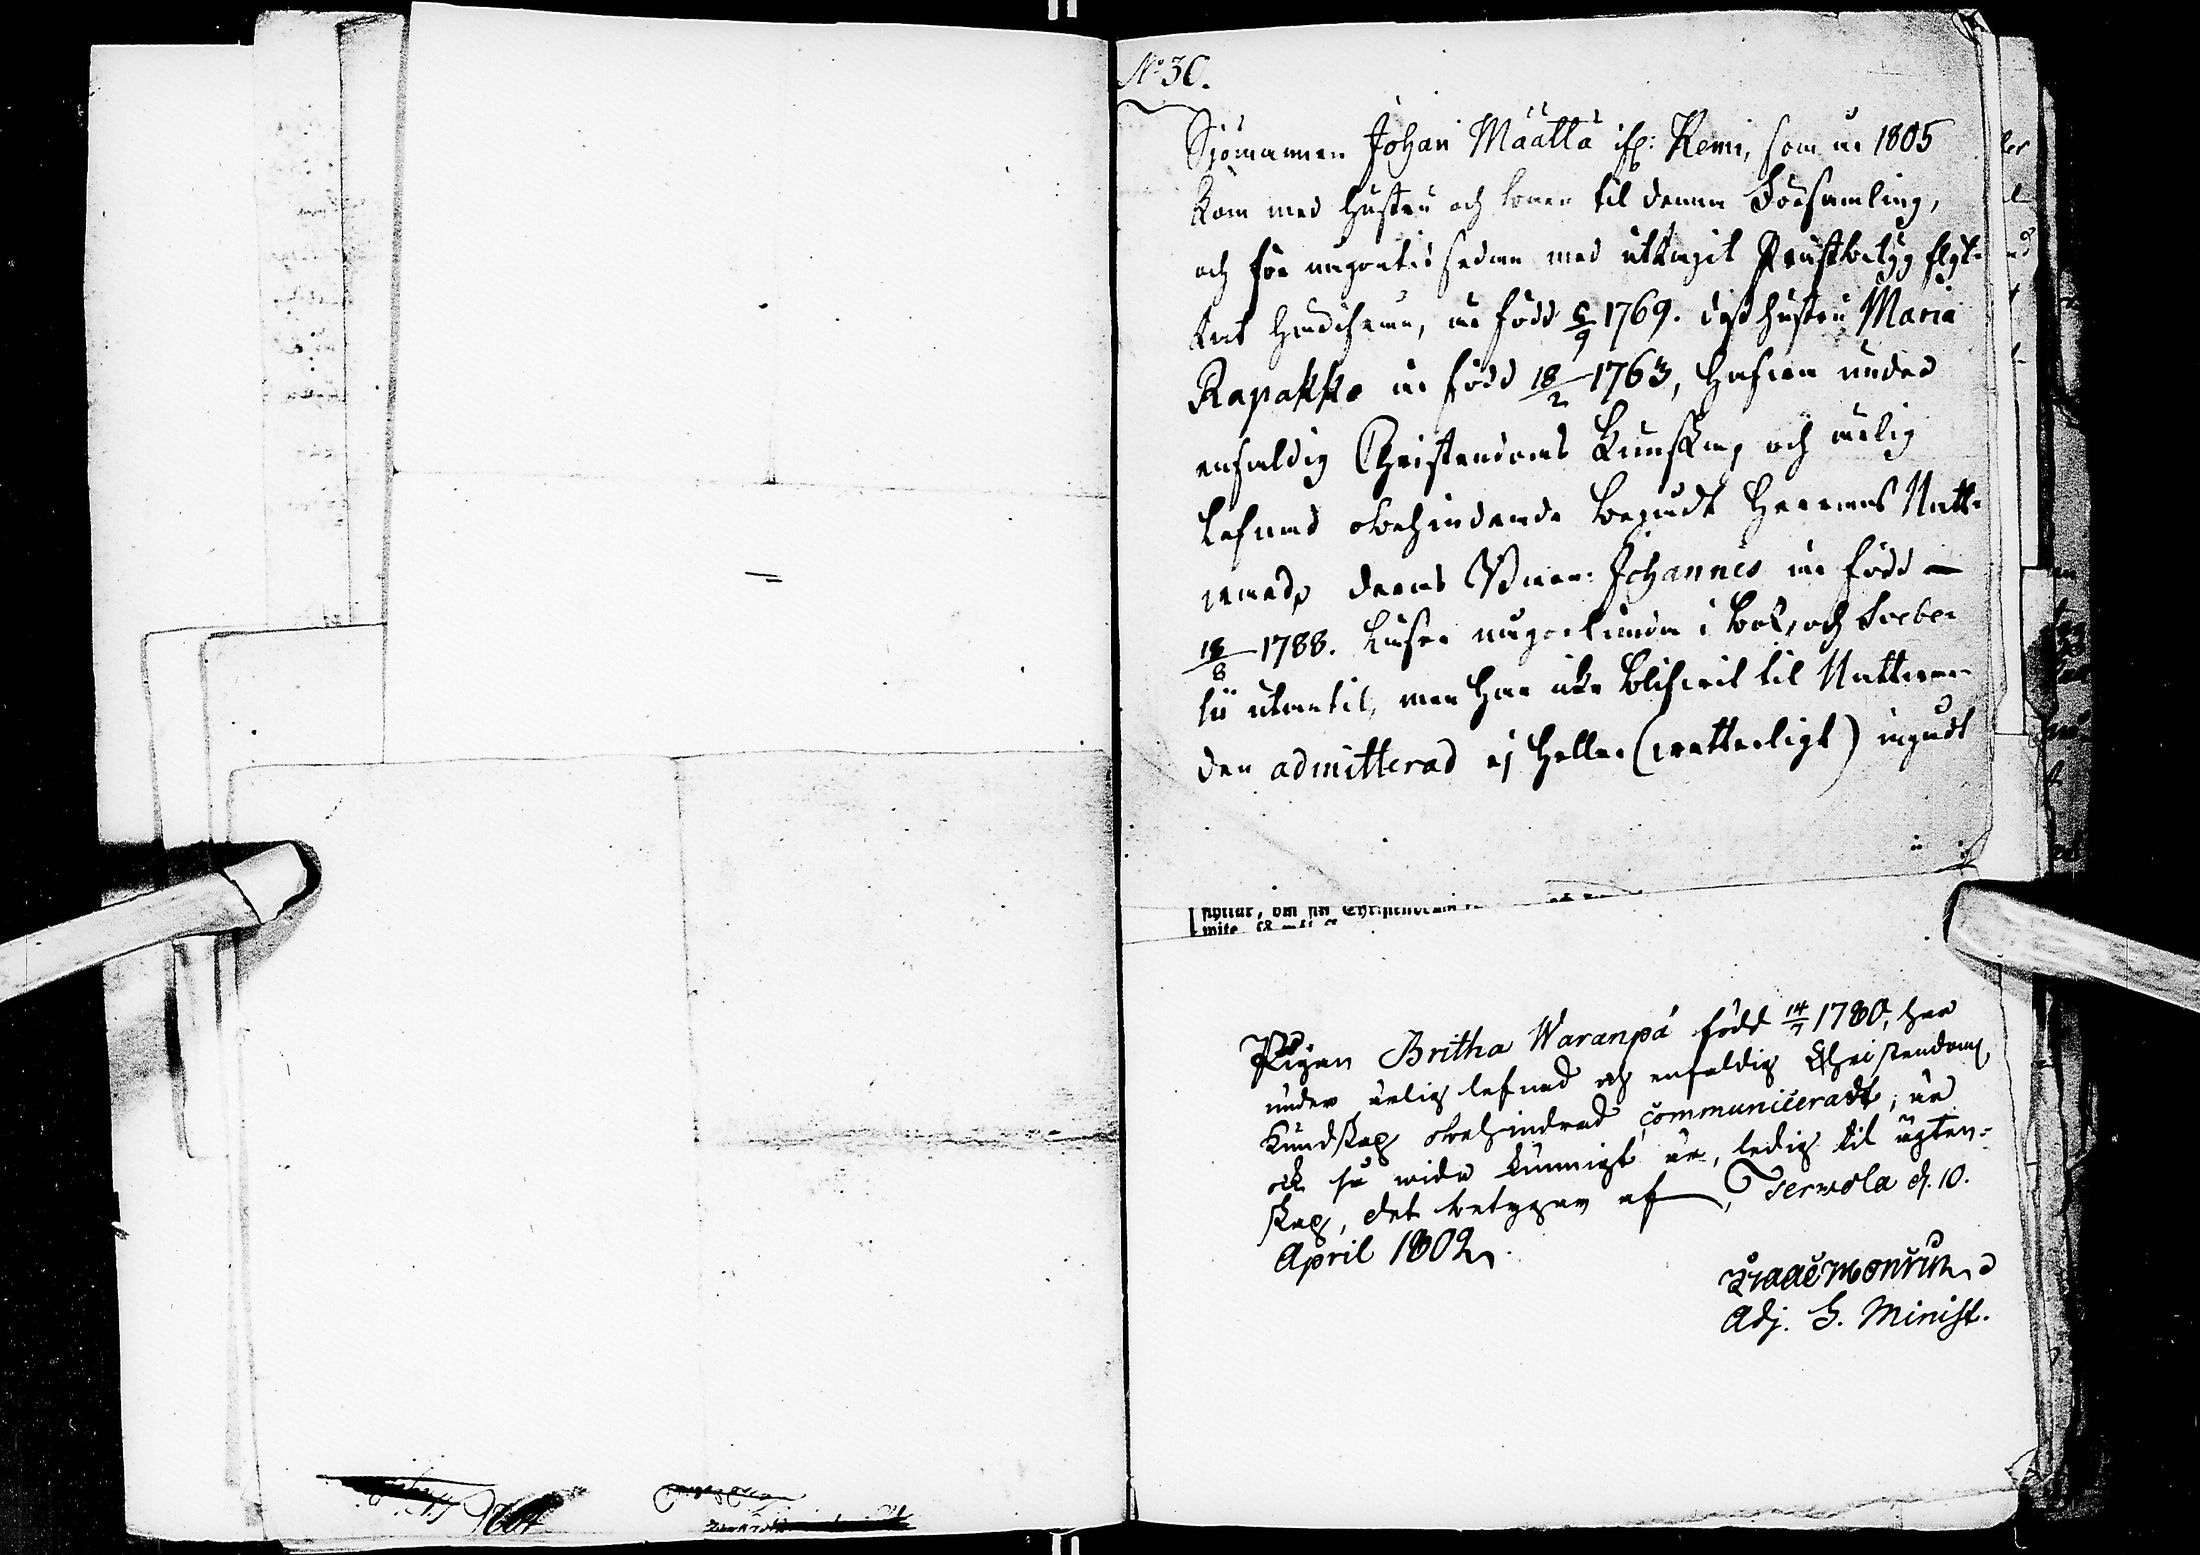 No 30.
Sjömannen Johan Määttä ifr: Kemi, som år 1805
kom med hustru och barn til denna Församling,
och för någon tid sedan med uttagit Prästbetyg flyt-
tat hädifrån, är född 9 1769. dess hustru Maria
Rapakko är född 18/2 1763, hafwa under
enfaldig Christendoms kunskap och ärlig
lefnad obehindrade begådt Herrans Natt-
ward, deras Son Johannes är född
18/8 1788. Läser någorlunda i bok, och
utantil, men har icke blifwit til Nattwar-
den admitterad ej heller (wetterligt) ingådt
Pigan Britha Waranpä född 14/7 1780, har
under ärlig lefnad och enfaldig Christendoms
Kundskap obehindrad communicerat, är
ock så wida kunnigt är, ledig til ägten-
skap, det betygar af, Terwola d. 10.
April 1802.
Isaac Monrun
Adj. S. Minist.